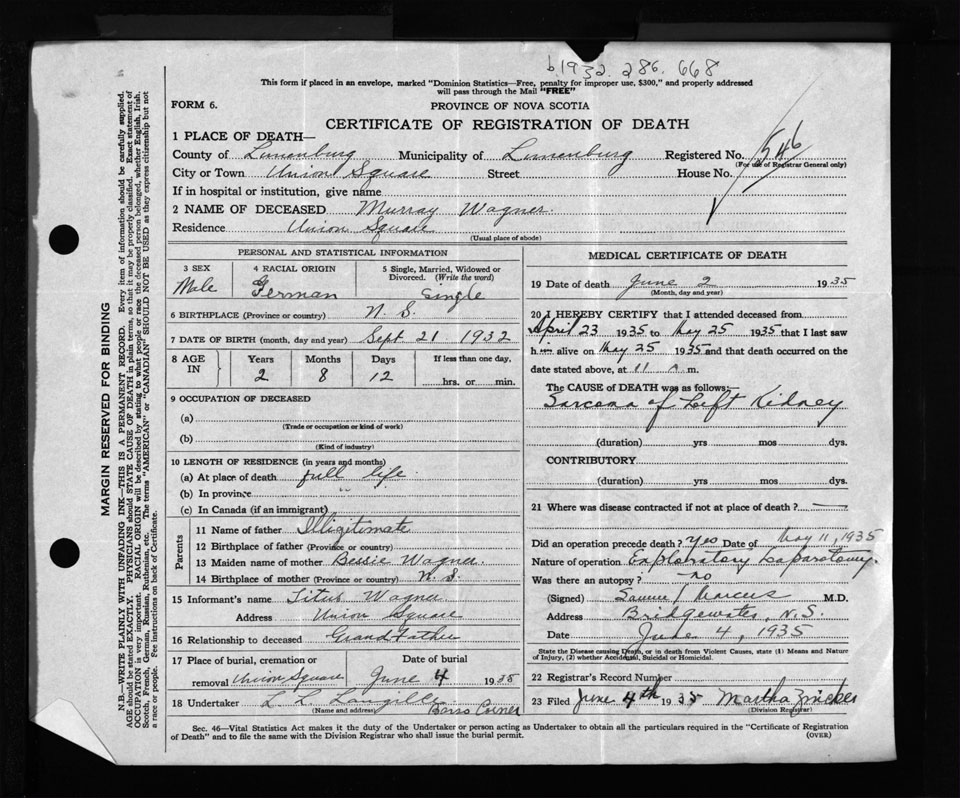 b.1932. 286. 668
This form if placed in an envelope, marked "Dominion Statistics—Free, penalty for improper use, $300," and properly addressed
will pass through the Mail "FREE"
FORM 6.
PROVINCE OF NOVA SCOTIA
CERTIFICATE OF REGISTRATION OF DEATH
1 PLACE OF DEATH—
County of Lunenburg Municipality of Lunenburg Registered No. 546
(For use of Registrar General only)
City or Town Union Square Street House No.
If in hospital or institution, give name
2 NAME OF DECEASED Murray Wagner
Residence Union Square
(Usual place of abode)
PERSONAL AND STATISTICAL INFORMATION
3 SEX 4 RACIAL ORIGIN 5 Single, Married, Widowed or
Divorced. (Write the word)
Male German Single
6 BIRTHPLACE (Province or country) N. S.
7 DATE OF BIRTH (month, day and year) Sept. 21 1932
8 AGE IN Years Months Days If less than one day,
2 8 12 hrs. or min.
9 OCCUPATION OF DECEASED
(a)
(Trade or occupation or kind of work)
(b)
(Kind of industry)
10 LENGTH OF RESIDENCE (in years and months)
(a) At place of death full life
(b) In province "
(c) In Canada (if an immigrant)
Parents
11 Name of father Illigitomate
12 Birthplace of father (Province or country)
13 Maiden name of mother Bessie Wagner
14 Birthplace of mother (Province or country) N. S.
15 Informant's name Titus Wagner
Address Union Square
16 Relationship to deceased Grand Father
17 Place of burial, cremation or Date of burial
removal Union Square June 4 1935
18 Undertaker L. L. Langille Barss Corner
(Name and address)
MEDICAL CERTIFICATE OF DEATH
19 Date of death June 2 1935
(Month, day and year)
20 I HEREBY CERTIFY that I attended deceased from
April 23 1935 to May 25 1935 that I last saw
him alive on May 25 1935 and that death occurred on the
date stated above, at 11 m.
The CAUSE OF DEATH was as follows:—
Sarcoma of Left Kidney
(duration) yrs mos dys.
CONTRIBUTORY
(duration) yrs mos dys.
21 Where was disease contracted if not at place of death? —
Did an operation precede death? Yes Date of May 11, 1935
Nature of operation Exploratory Laparotomy.
Was there an autopsy? no
(Signed) Marcus M.D.
Address Bridgewater, N.S.
Date June 4, 1935
State the Disease causing Death, or in death from Violent Causes, state (1) Means and Nature
of Injury, (2) whether Accidental, Suicidal or Homicidal.
22 Registrar's Record Number
23 Filed June 4th 1935 Martha Zwicker
(Division Registrar)
Sec. 46—Vital Statistics Act makes it the duty of the Undertaker or person acting as Undertaker to obtain all the particulars required in the "Certificate of Registration
of Death" and to file the same with the Division Registrar who shall issue the burial permit.
(OVER)
MARGIN RESERVED FOR BINDING
N.B.—WRITE PLAINLY WITH UNFADING INK—THIS IS A PERMANENT RECORD. Every item of information should be carefully supplied.
AGE should be stated EXACTLY. PHYSICIANS should STATE CAUSE OF DEATH in plain terms, so that it may be properly classified. Exact statement of
OCCUPATION is very important. RACIAL ORIGIN will be described by stating to what people or race the deceased person belonged, whether English, Irish,
Scotch, French, German, Russian, Ruthenian, etc. The terms "AMERICAN" or "CANADIAN" SHOULD NOT BE USED as they express citizenship but not
a race or people. See instructions on back of Certificate.